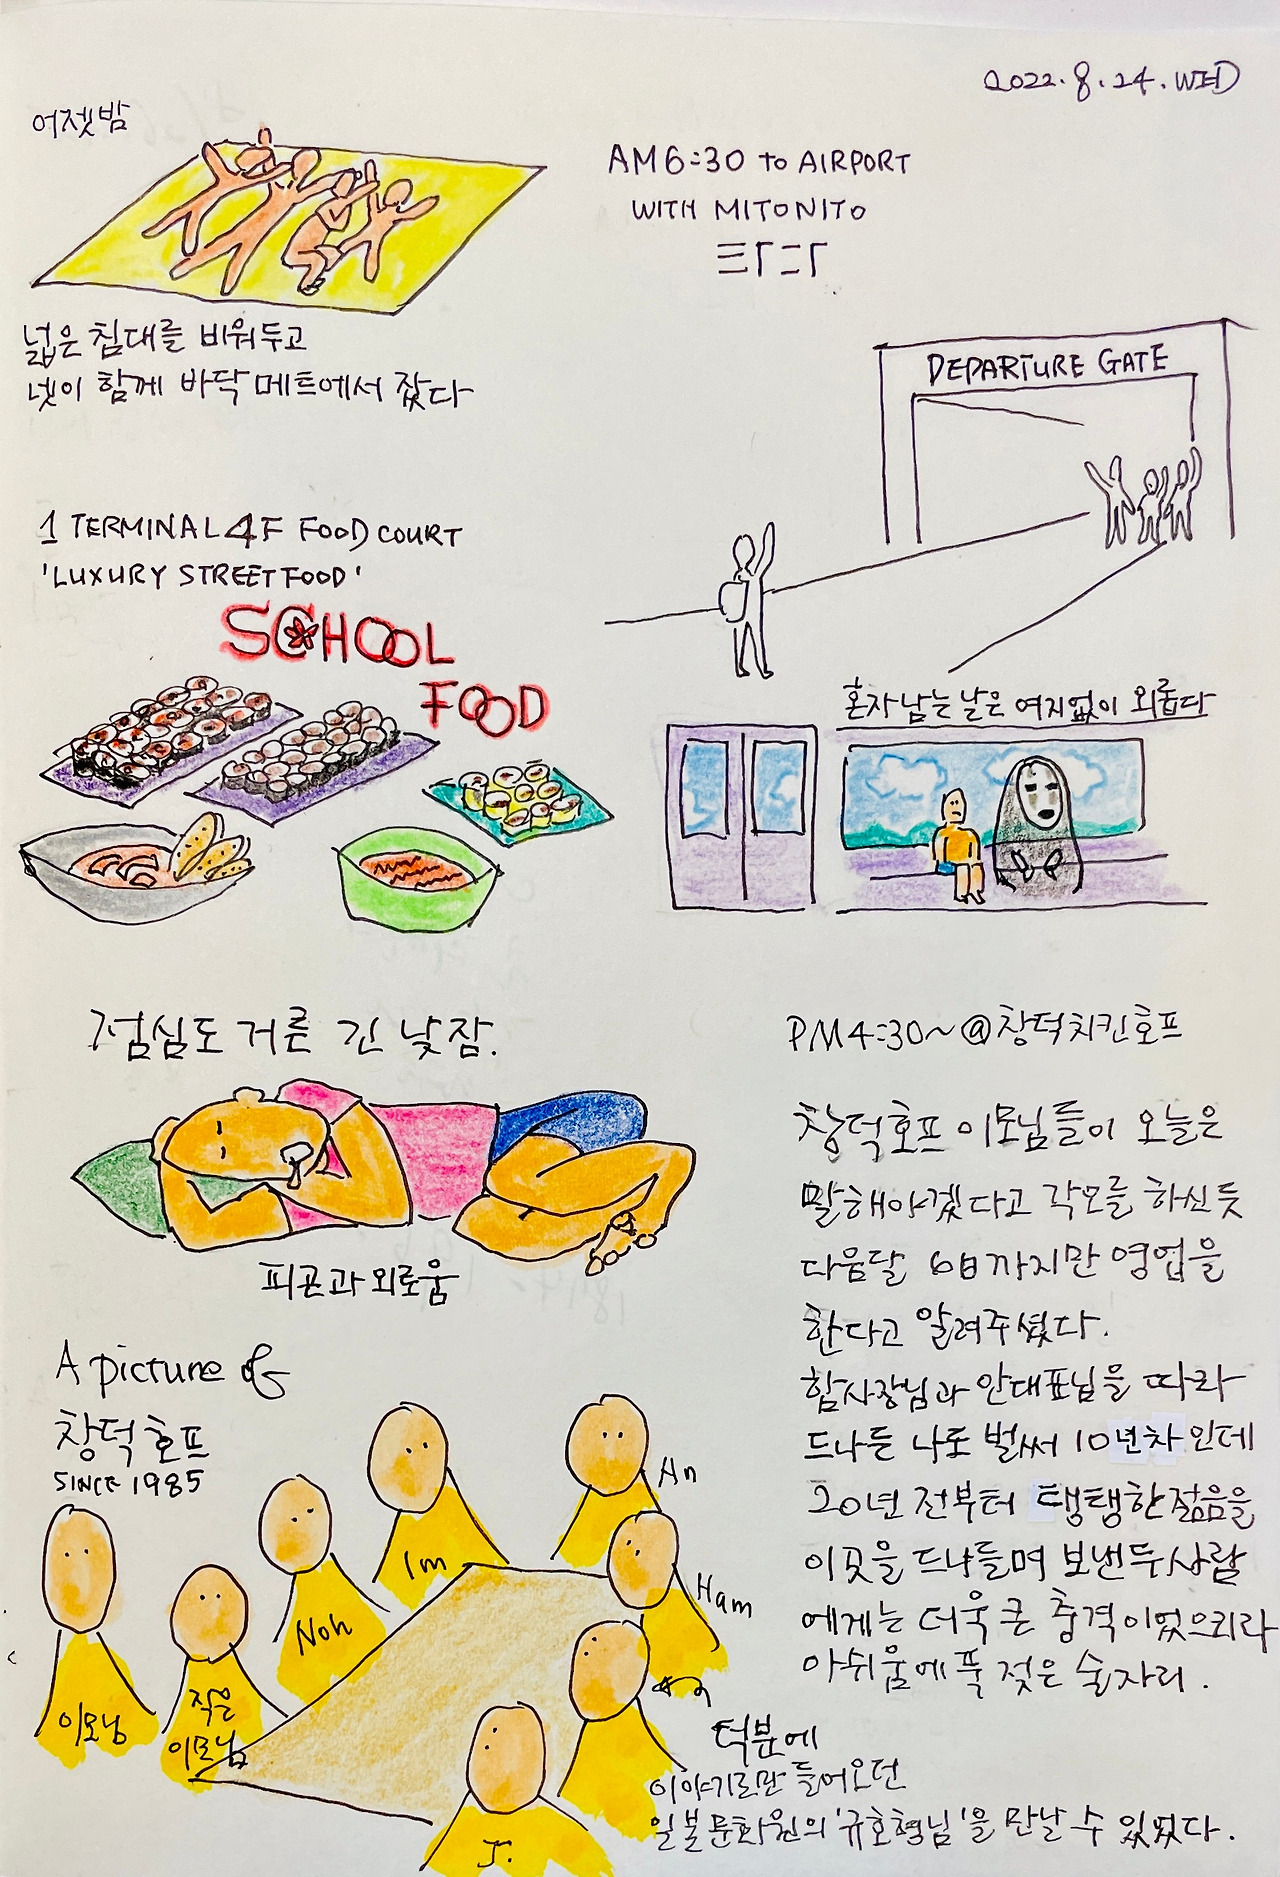 2022.8.24.WED
어젯밤
넓은 침대를 비워두고
넷이 함께 바닥 메트에서 잤다
AM6:30 to AIRPORT
WITH MITONITO
DEPARTURE GATE
1 TERMINAL 4F FOOD COURT
'LUXURY STREET FOOD'
SCHOOL
FOOD
혼자 남는 날은 여지없이 외롭다
점심도 거른 긴 낮잠.
피곤과 외로움
PM4:30~@창덕치킨호프
창덕호프 이모님들이 오늘은
말해야겠다고 각오를 하신듯
다음달 6日까지만 영업을
한다고 알려주셨다.
함사장님과 안대표님을 따라
드나든 나도 벌써 10년차인데
20년 전부터 탱탱한 젊음을
이곳을 드나들며 보낸 두사람
에게는 더욱 큰 충격이었으리라
아쉬움에 푹 젖은 술자리.
A picture of
창덕호프
SINCE 1985
이모님
작은
이모님
Noh
Im
An
Ham
J.
덕분에
이야기로만 들어오던
일본문화원의 '규호형님'을 만날 수 있었다.